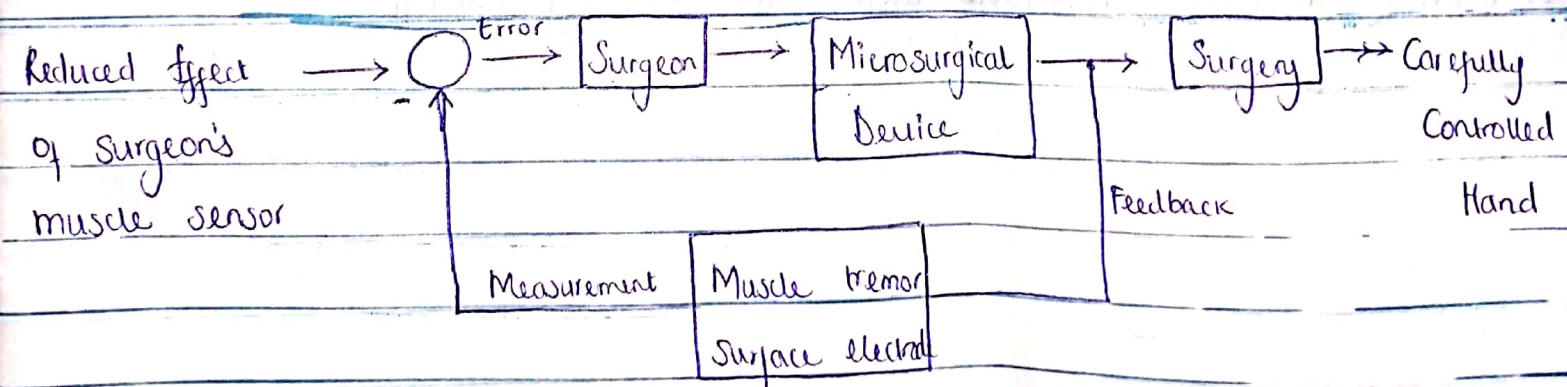 Reduced Effect
of surgeon's
muscle sensor
-
Error
Surgeon
Microsurgical
Device
Surgery
Carefully
Controlled
Hand
Feedback
Measurement
Muscle tremor
Surface electrod